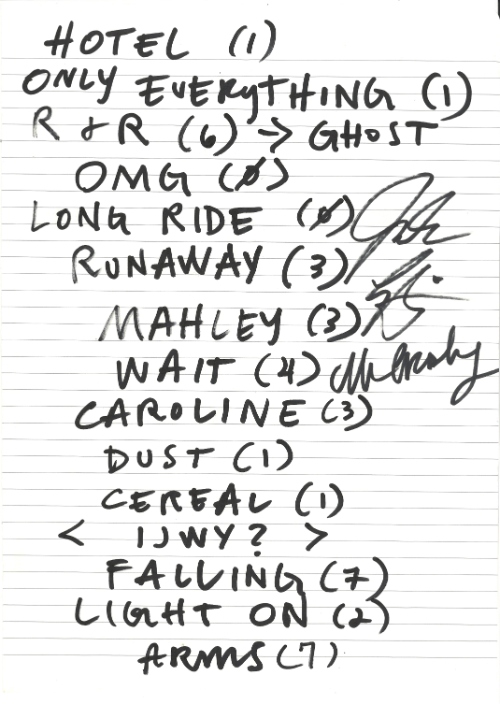 HOTEL (1)
ONLY EVERYTHING (1)
R & R (6) → GHOST
OMG (0)
LONG RIDE (0)
RUNAWAY (3)
MAHLEY (3)
WAIT (4)
CAROLINE (3)
DUST (1)
CEREAL (1)
< IJWY? >
FALLING (7)
LIGHT ON (2)
ARMS (7)